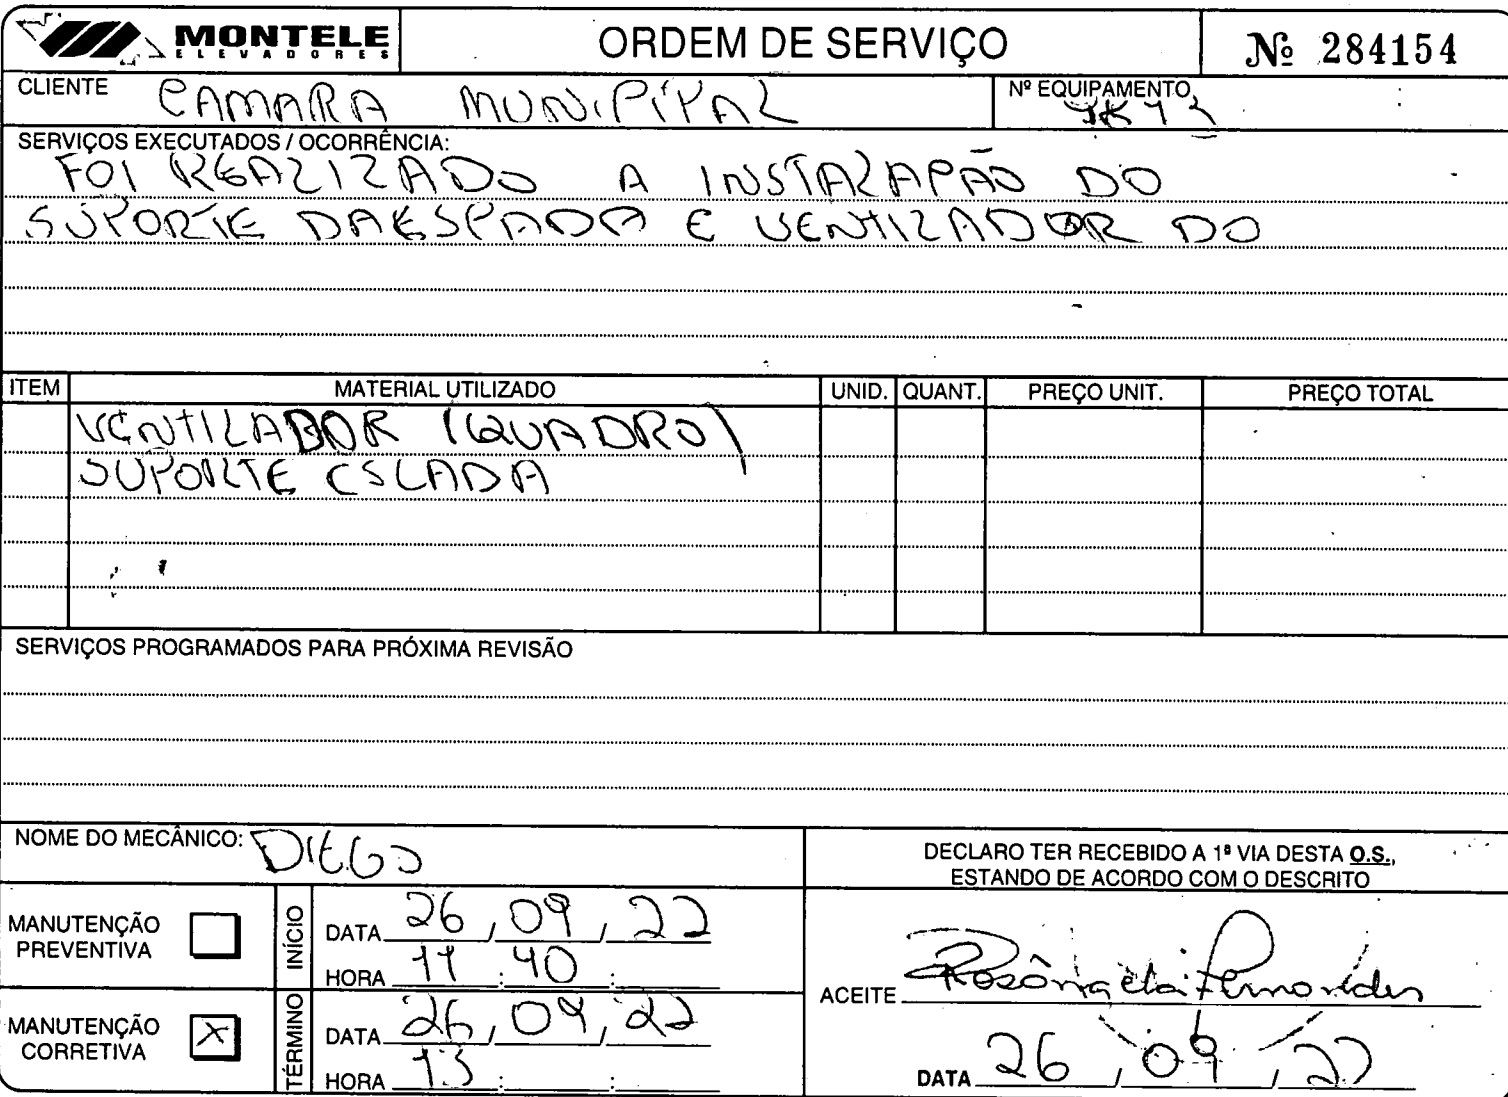 MONTELE
ELEVADORES
ORDEM DE SERVIÇO
Nº 284154
CLIENTE CAMARA MUNICIPAL
Nº EQUIPAMENTO
SERVIÇOS EXECUTADOS / OCORRÊNCIA:
FOI REALIZADO A INSTALAÇÃO DO
SUPORTE DA ESPADA E VENTILADOR DO
ITEM MATERIAL UTILIZADO UNID. QUANT. PREÇO UNIT. PREÇO TOTAL
VENTILADOR (QUADRO)
SUPORTE ESPADA
SERVIÇOS PROGRAMADOS PARA PRÓXIMA REVISÃO
NOME DO MECÂNICO: DIEGO
MANUTENÇÃO PREVENTIVA
INÍCIO
DATA 26 / 09 / 22
HORA 11 : 40 :
MANUTENÇÃO CORRETIVA X
TÉRMINO
DATA 26 / 09 / 22
HORA 13 : :
DECLARO TER RECEBIDO A 1ª VIA DESTA O.S.,
ESTANDO DE ACORDO COM O DESCRITO
ACEITE Rosângela Fernandes
DATA 26 / 09 / 22